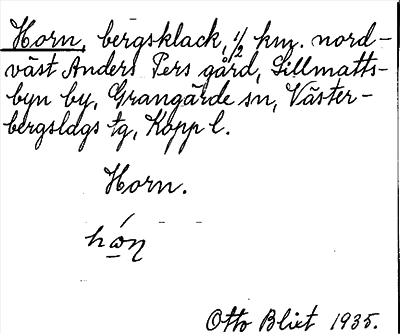 Horn, bergsklack, 1/2 km. nord-
väst Anders Pers gård, Sillmatts-
byn by, Grangärde sn, Väster-
bergslags tg, Kopp l.
Horn.
Otto Blixt 1935.